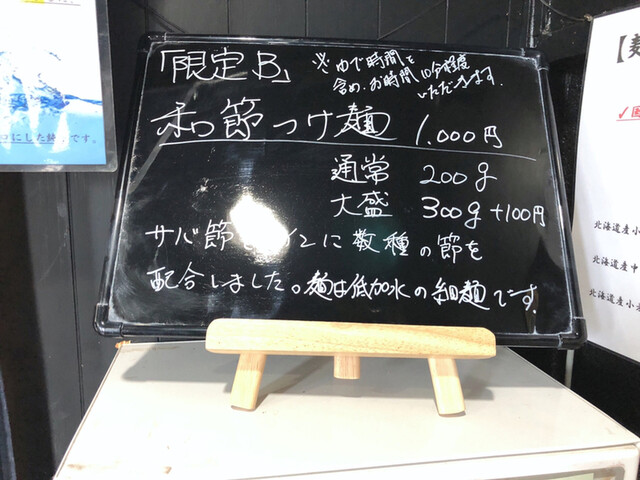 「限定B」
※ゆで時間を
含め、お時間10分程度
いただきます.
和節つけ麺 1,000円
通常 200g
大盛 300g +100円
サバ節をメインに数種の節を
配合しました。麺は低加水の細麺です.
口にした
です。
【麺
北海道産小
北海道産中
北海道産小麦